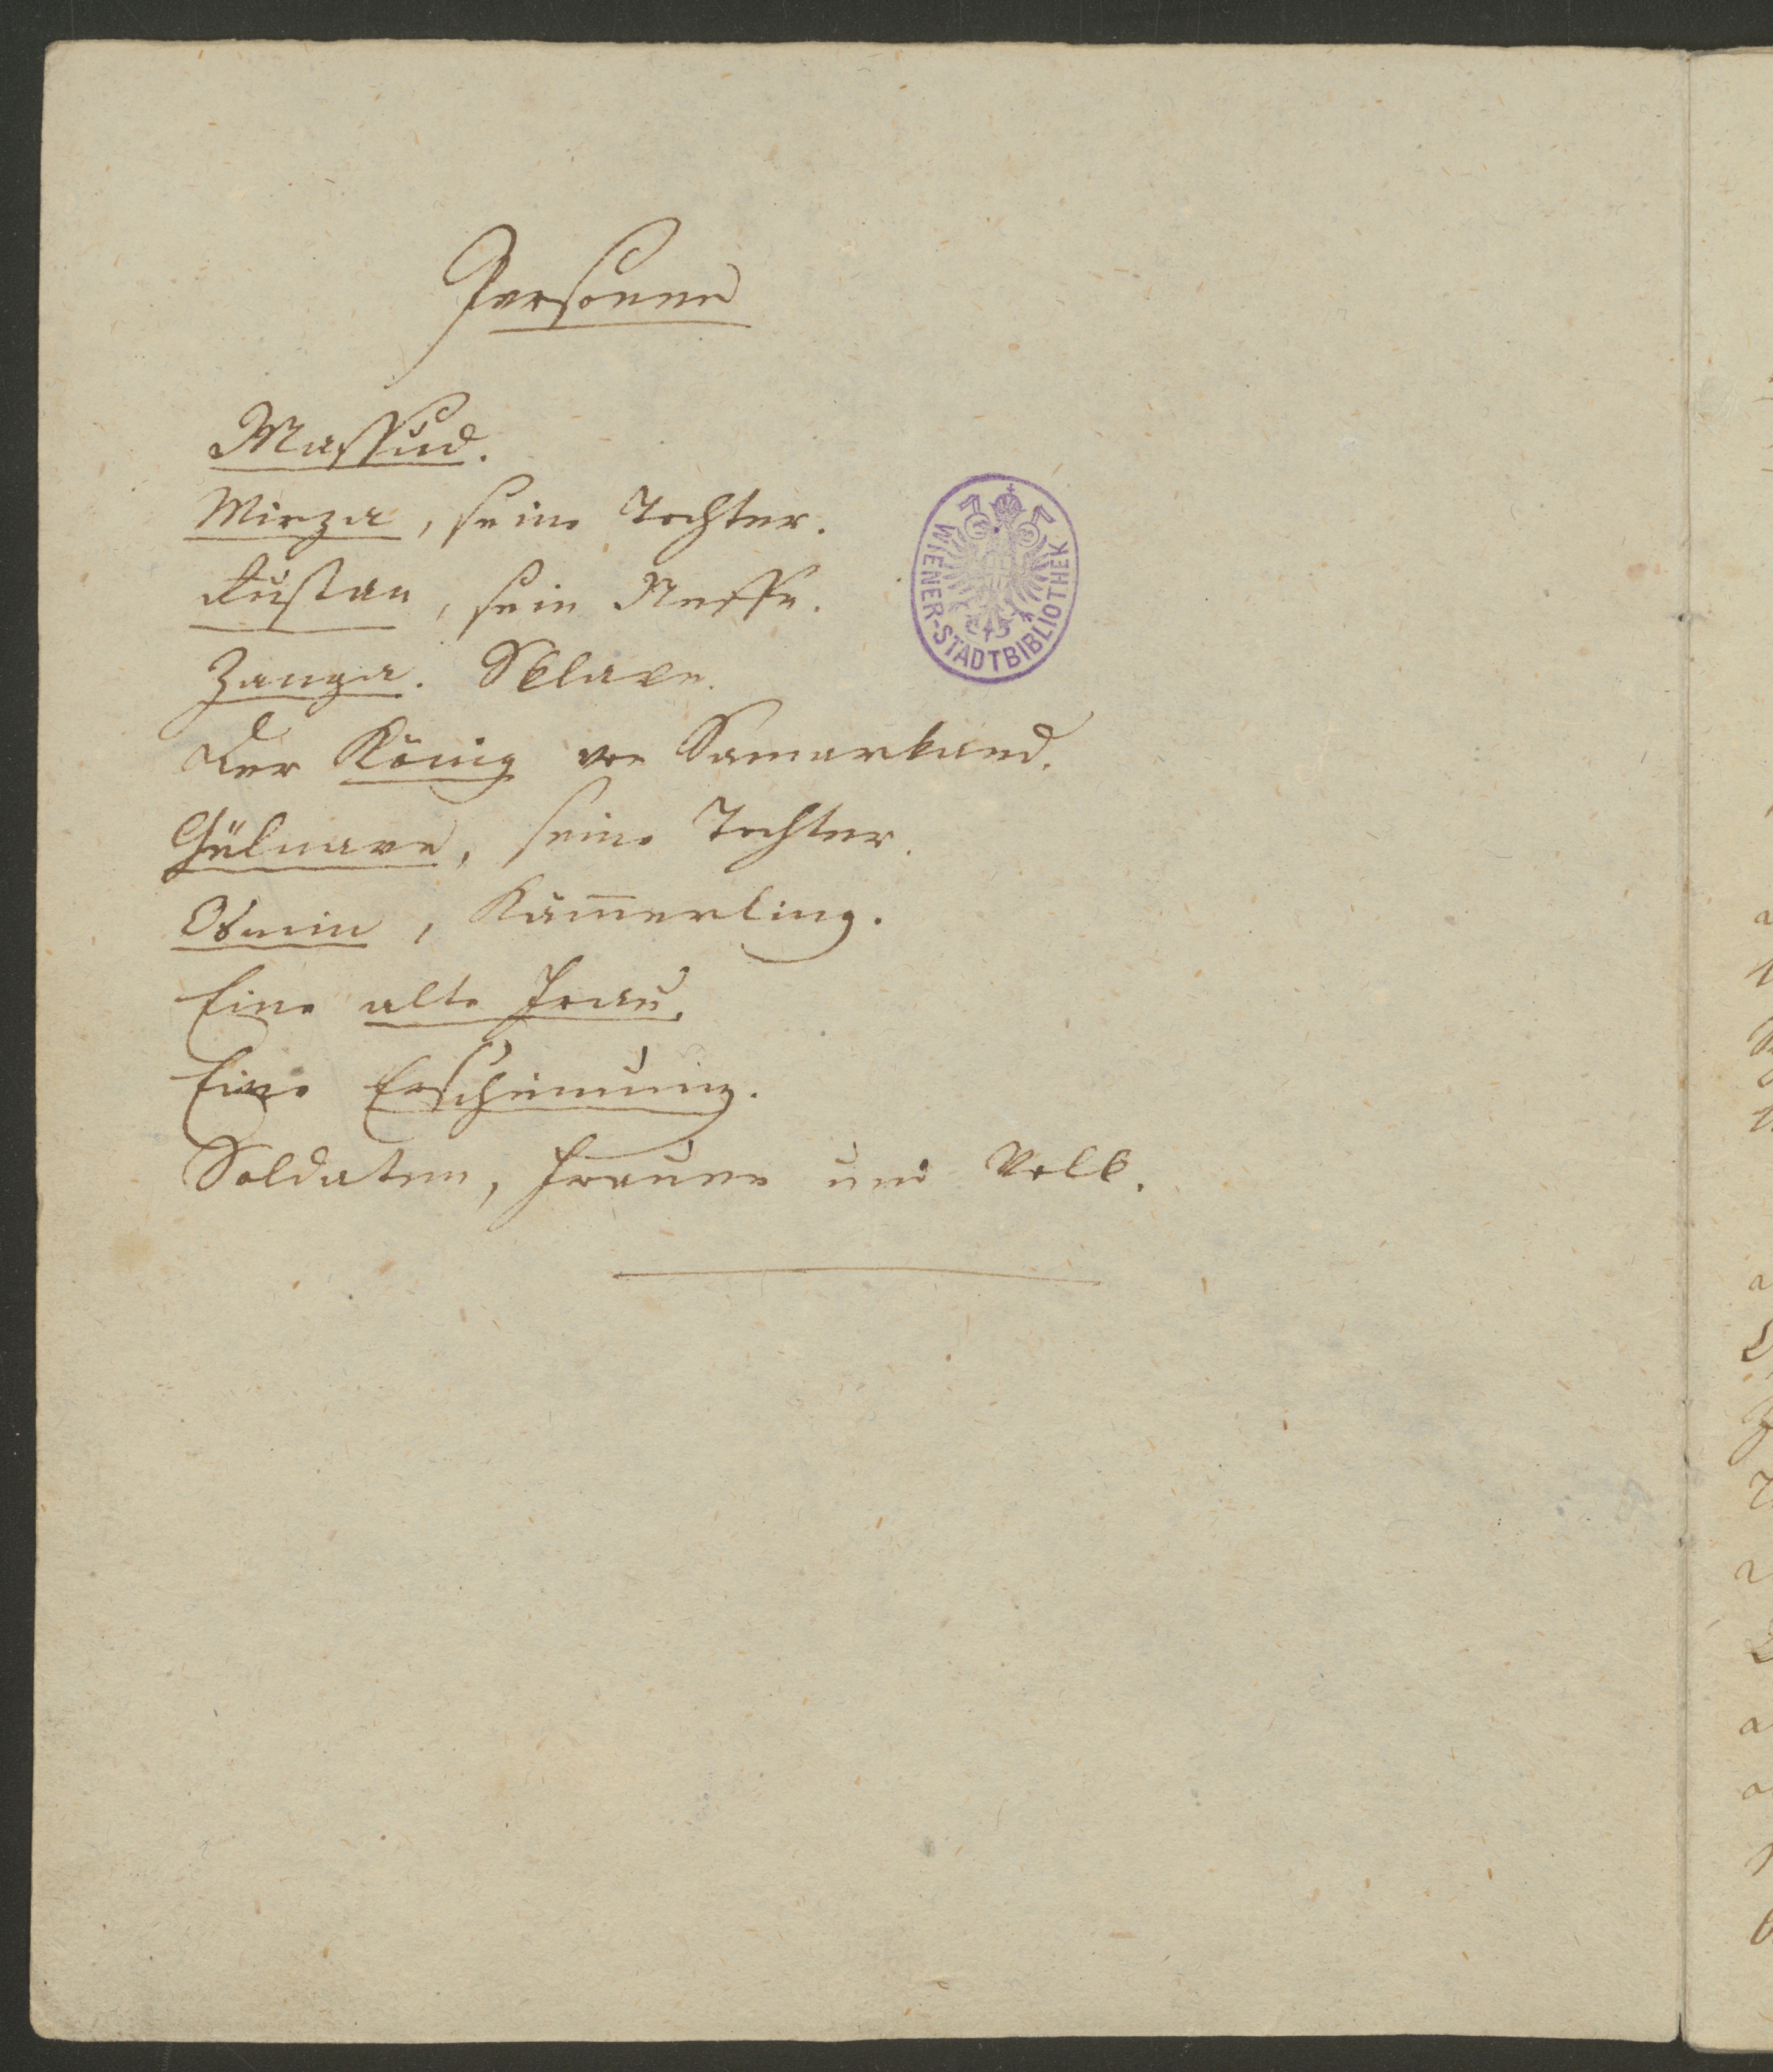 Personen
Massud.
Mirza, seine Tochter.
Rustan, sein Neffe.
Zanga. Sklave.
Der König von Samarkand.
Gülnare, seine Tochter.
Osmin, Kam̅erling.
Eine alte Frau.
Eine Erscheinung.
Soldaten, Frauen und Volk.
WIENER-STADTBIBLIOTHEK